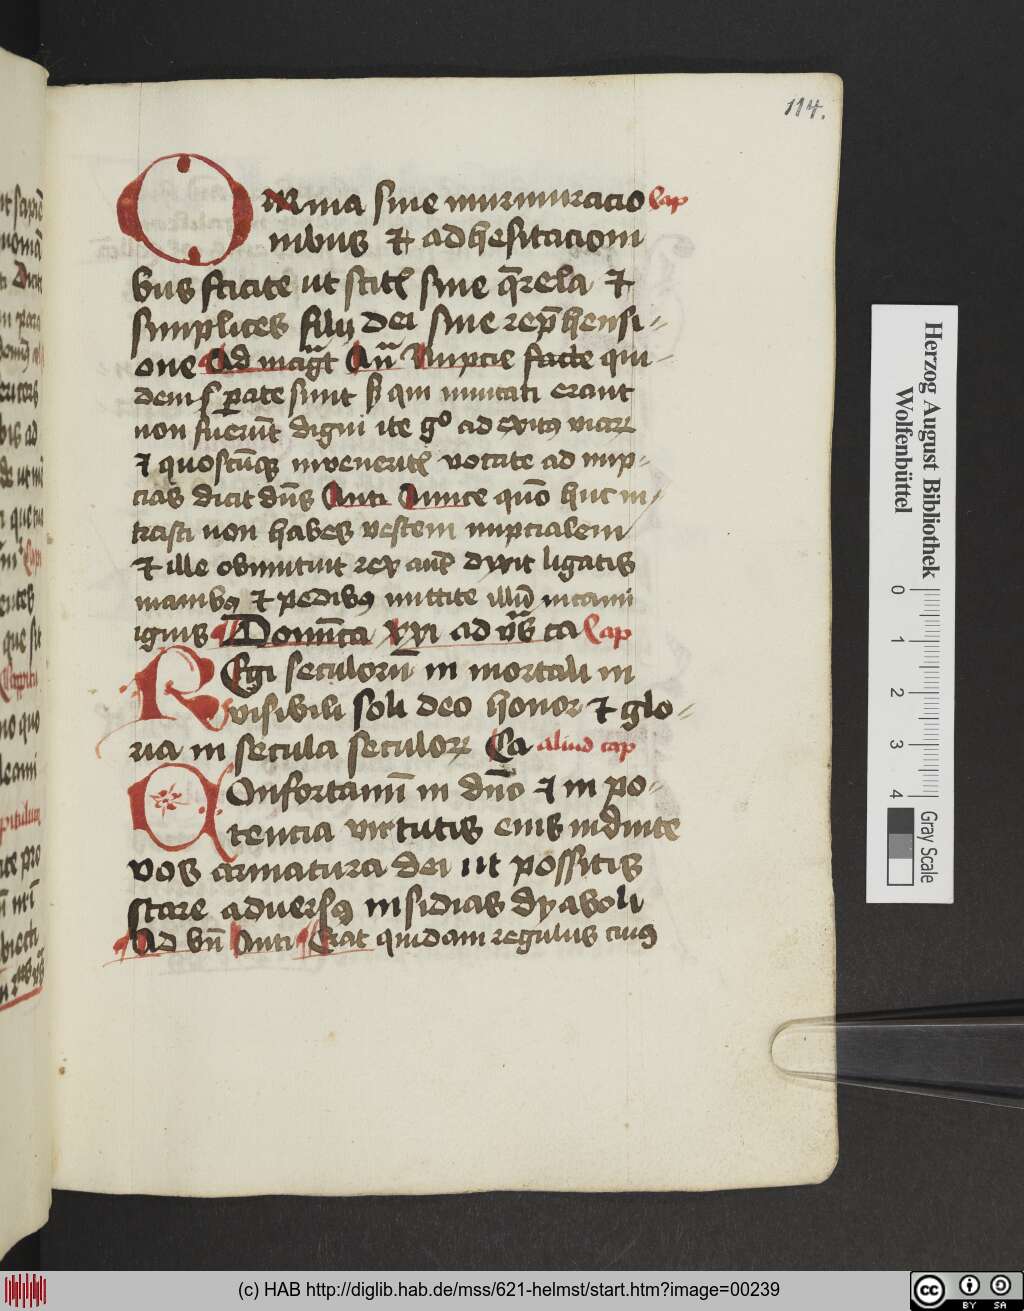 114.
OMnia sine murmuracio Cap
nibus et adhesitacioni
bus facite ut scitis sine q̄rela et
simplices filij dei sine rep̄hensi-
one Ad magᵗ Añ Nupcie facte qui-
dem s̄ parate sunt sʒ qui inuitati erant
non fuerūt digni ite gᵒ ad exitus viarꝝ
et quoscūqꝫ inveneritꝭ vocate ad nup-
cias dicit dn̄s Anti Amice quō huc in-
trasti non habes vestem nupcialem
et ille obmutuit rex aut̄ dyxit ligatis
manibꝰ et pedibꝰ mittite illū in cami
ignis Domīca xxi ad vs̄ ca Cap
REgi seculorū in mortali in
visibili soli deo honor et glo-
ria in secula seculorꝝ Ca aliud cap
COnfortamī in dn̄o et in po-
tencia virtutis eius induite
vos armatura dei ut possitis
stare adversꝰ insidias dyaboli
Ad bn̄ Anti Erat quidam regulus cuiꝰ
Herzog August Bibliothek
Wolfenbüttel
0 1 2 3 4
Gray Scale
(c) HAB http://diglib.hab.de/mss/621-helmst/start.htm?image=00239
cc BY SA